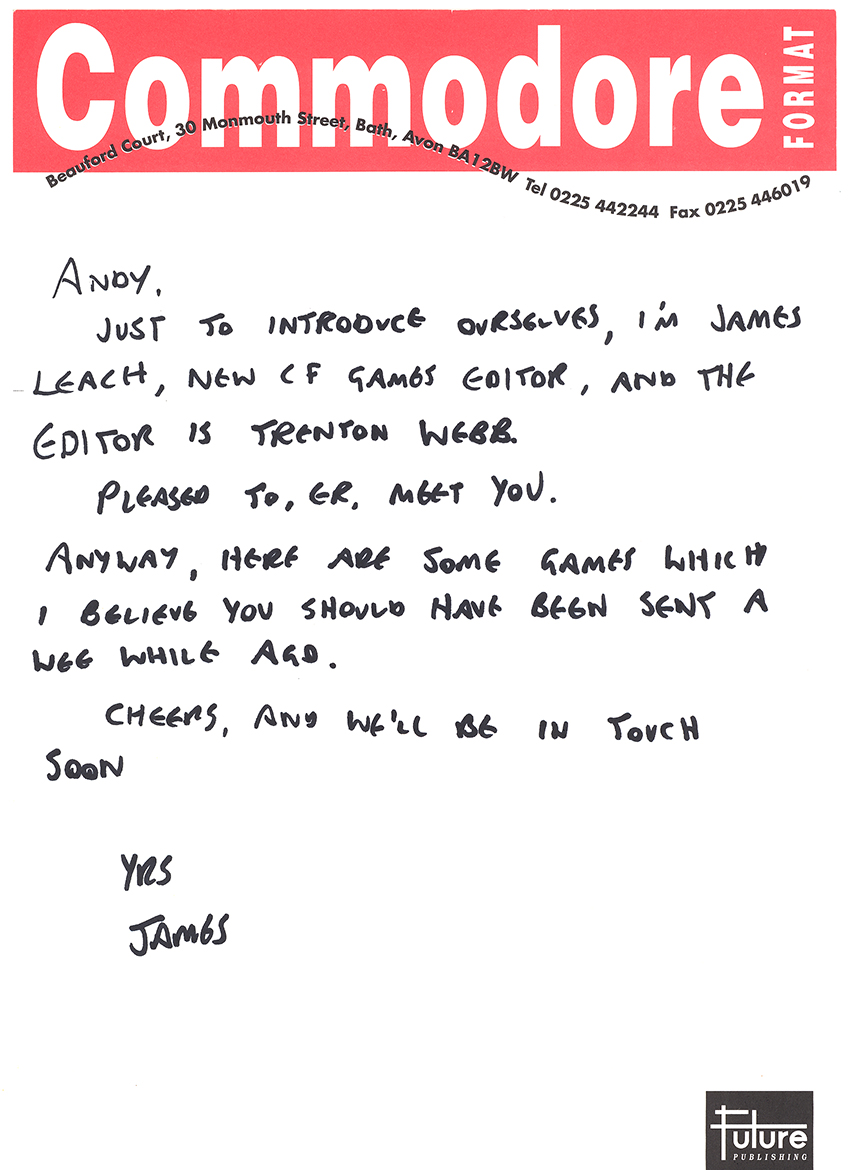 Commodore
FORMAT
Beauford Court, 30 Monmouth Street, Bath, Avon BA12BW Tel 0225 442244 Fax 0225 446019
ANDY.
JUST TO INTRODUCE OURSELVES, I'M JAMES
LEACH, NEW CF GAMES EDITOR, AND THE
EDITOR IS TRENTON WEBB.
PLEASED TO, ER, MEET YOU.
ANYWAY, HERE ARE SOME GAMES WHICH
I BELIEVE YOU SHOULD HAVE BEEN SENT A
WEE WHILE AGO.
CHEERS, AND WE'LL BE IN TOUCH
SOON
YRS
JAMES
Future
PUBLISHING